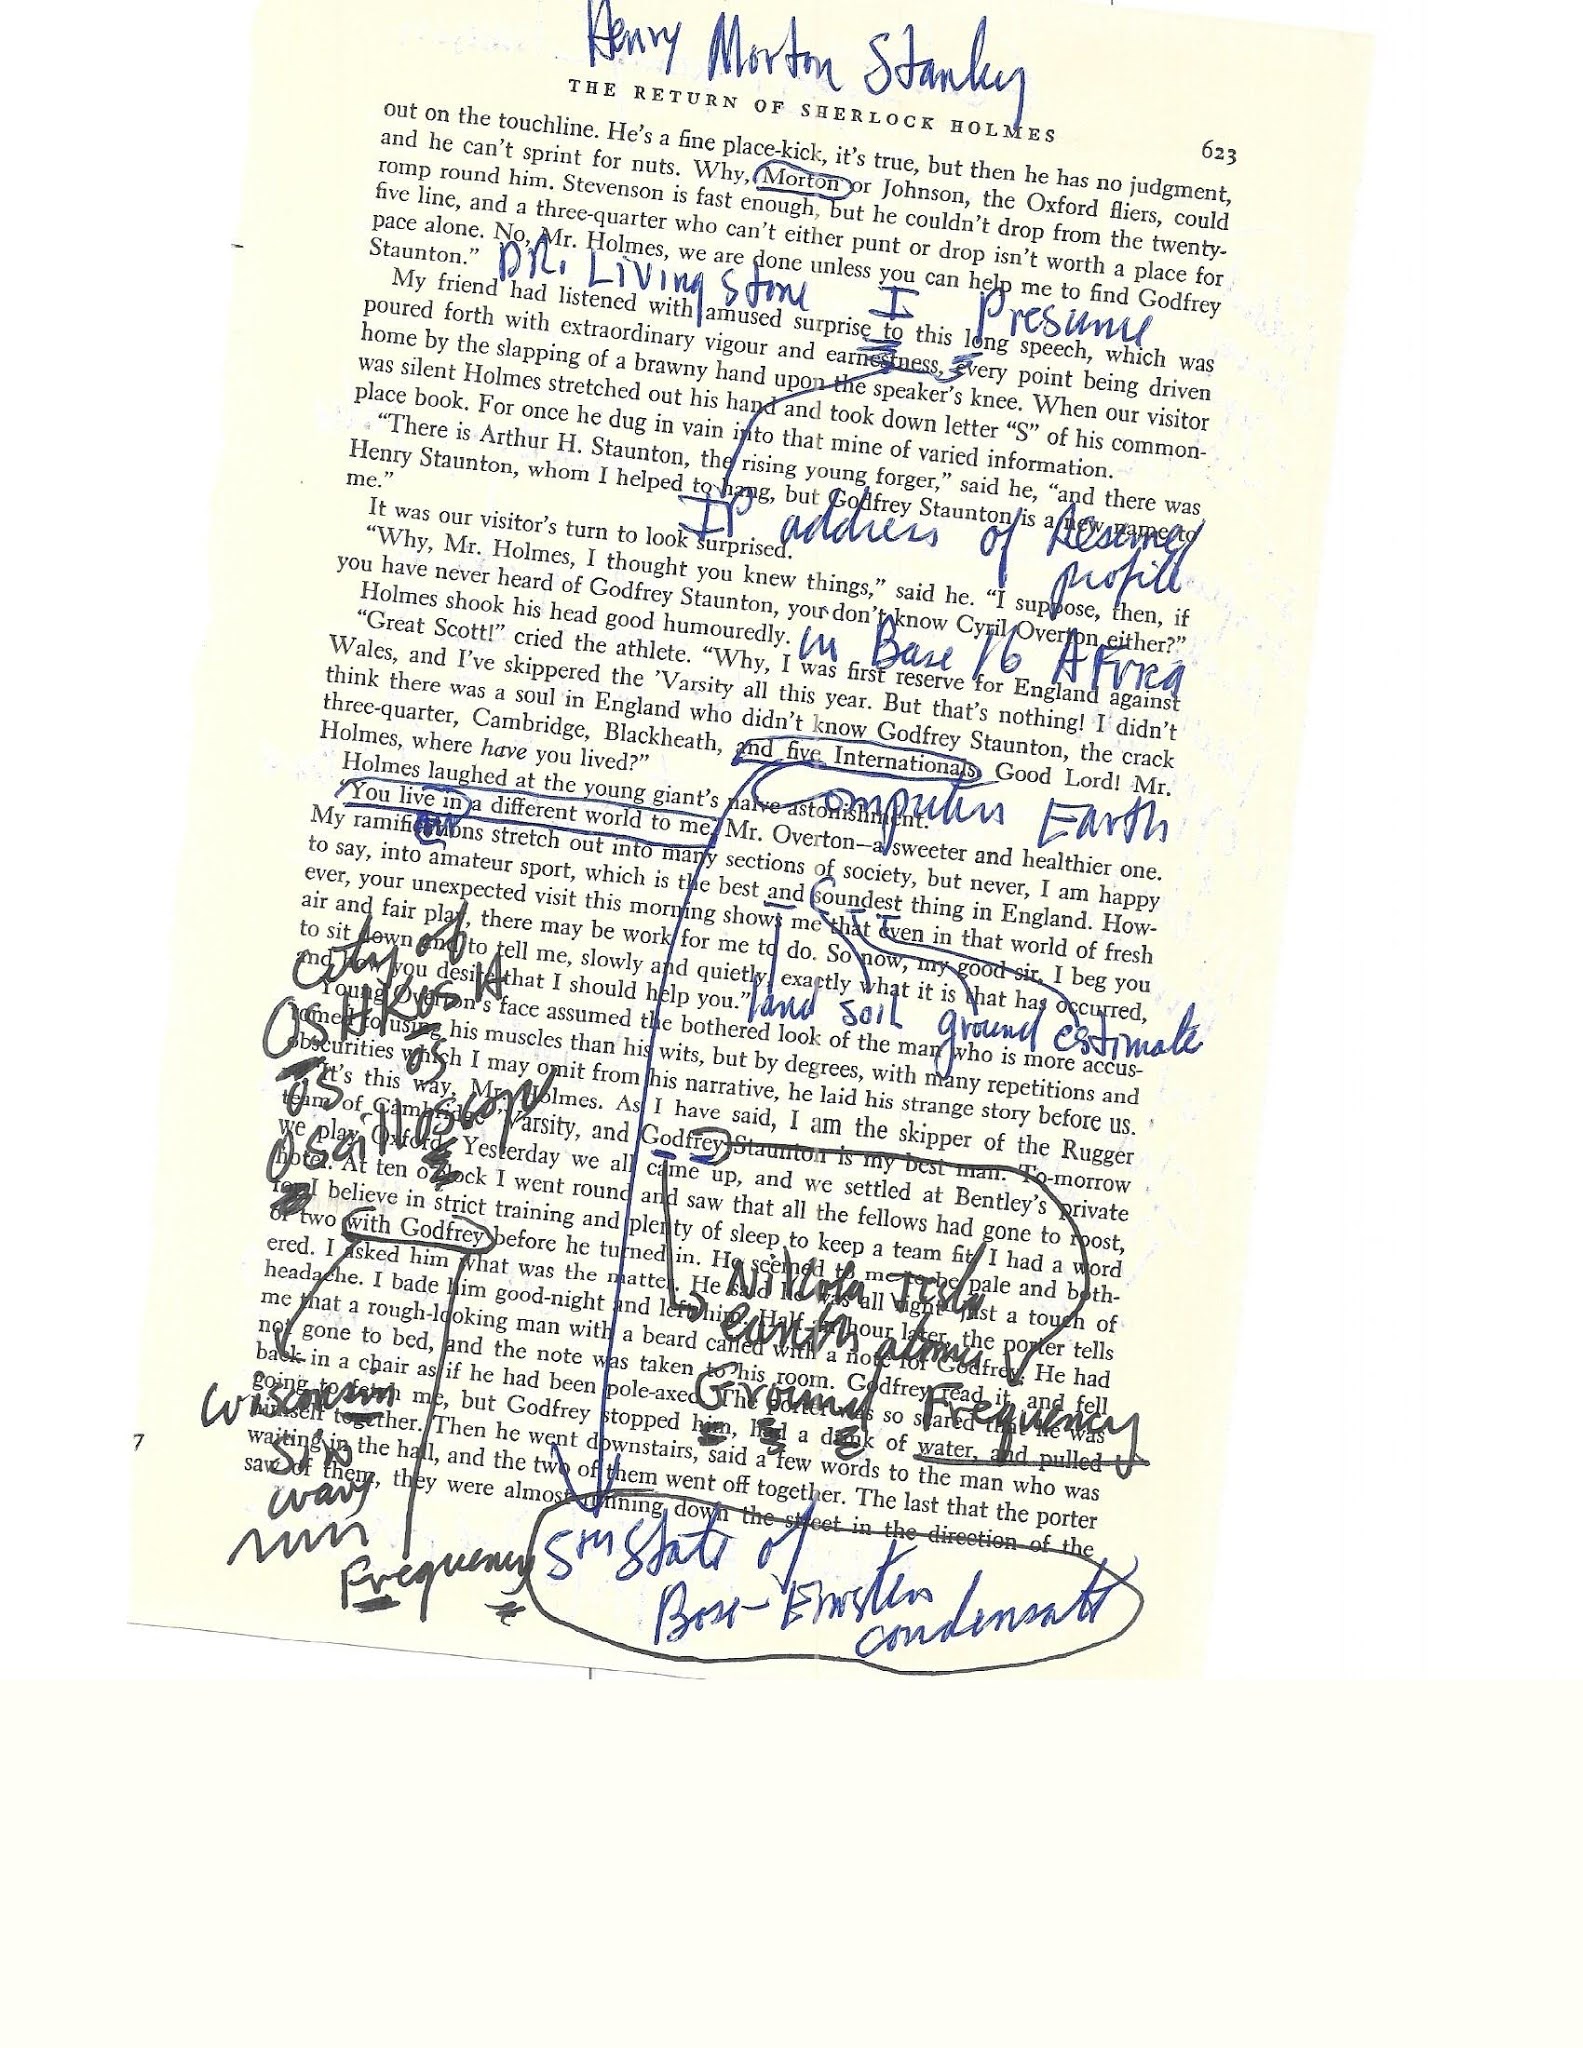 Henry Morton Stanley
THE RETURN OF SHERLOCK HOLMES
623
out on the touchline. He's a fine place-kick, it's true, but then he has no judgment,
and he can't sprint for nuts. Why, Morton or Johnson, the Oxford fliers, could
romp round him. Stevenson is fast enough, but he couldn't drop from the twenty-
five line, and a three-quarter who can't either punt or drop isn't worth a place for
pace alone. No, Mr. Holmes, we are done unless you can help me to find Godfrey
Staunton."
DR. Livingstone I Presume
My friend had listened with amused surprise to this long speech, which was
poured forth with extraordinary vigour and earnestness, every point being driven
home by the slapping of a brawny hand upon the speaker's knee. When our visitor
was silent Holmes stretched out his hand and took down letter "S" of his common-
place book. For once he dug in vain into that mine of varied information.
"There is Arthur H. Staunton, the rising young forger," said he, "and there was
Henry Staunton, whom I helped to hang, but Godfrey Staunton is a new name to
me."
IP address of
It was our visitor's turn to look surprised.
"Why, Mr. Holmes, I thought you knew things," said he. "I suppose, then, if
you have never heard of Godfrey Staunton, you don't know Cyril Overton either?"
Holmes shook his head good humouredly.
in Base 16 Africa
"Great Scott!" cried the athlete. "Why, I was first reserve for England against
Wales, and I've skippered the 'Varsity all this year. But that's nothing! I didn't
think there was a soul in England who didn't know Godfrey Staunton, the crack
three-quarter, Cambridge, Blackheath, and five Internationals. Good Lord! Mr.
Holmes, where have you lived?"
Holmes laughed at the young giant's naive astonishment.
Computers Earth
"You live in a different world to me, Mr. Overton—a sweeter and healthier one.
My ramifications stretch out into many sections of society, but never, I am happy
to say, into amateur sport, which is the best and soundest thing in England. How-
ever, your unexpected visit this morning shows me that even in that world of fresh
air and fair play, there may be work for me to do. So now, my good sir, I beg you
to sit down and to tell me, slowly and quietly, exactly what it is that has occurred,
and how you desire that I should help you."
land soil ground estimate
Young Overton's face assumed the bothered look of the man who is more accus-
tomed to using his muscles than his wits, but by degrees, with many repetitions and
obscurities which I may omit from his narrative, he laid his strange story before us.
"It's this way, Mr. Holmes. As I have said, I am the skipper of the Rugger
team of Cambridge 'Varsity, and Godfrey Staunton is my best man. To-morrow
we play Oxford. Yesterday we all came up, and we settled at Bentley's private
hotel. At ten o'clock I went round and saw that all the fellows had gone to roost,
for I believe in strict training and plenty of sleep to keep a team fit. I had a word
or two with Godfrey before he turned in. He seemed to me to be pale and both-
ered. I asked him what was the matter. He said he was all right—just a touch of
headache. I bade him good-night and left him. Half an hour later, the porter tells
me that a rough-looking man with a beard called with a note for Godfrey. He had
not gone to bed, and the note was taken to his room. Godfrey read it, and fell
back in a chair as if he had been pole-axed. The porter was so scared that he was
going to fetch me, but Godfrey stopped him, had a drink of water, and pulled
himself together. Then he went downstairs, said a few words to the man who was
waiting in the hall, and the two of them went off together. The last that the porter
saw of them, they were almost running down the street in the direction of the
city of
OSHKOSH
os
as
Oscilloscope
Nikola Tesla
earth atomic
Ground Frequency
wisconsin
sin
wave
Frequency
5th State of
Bose-Einstein
condensate
7